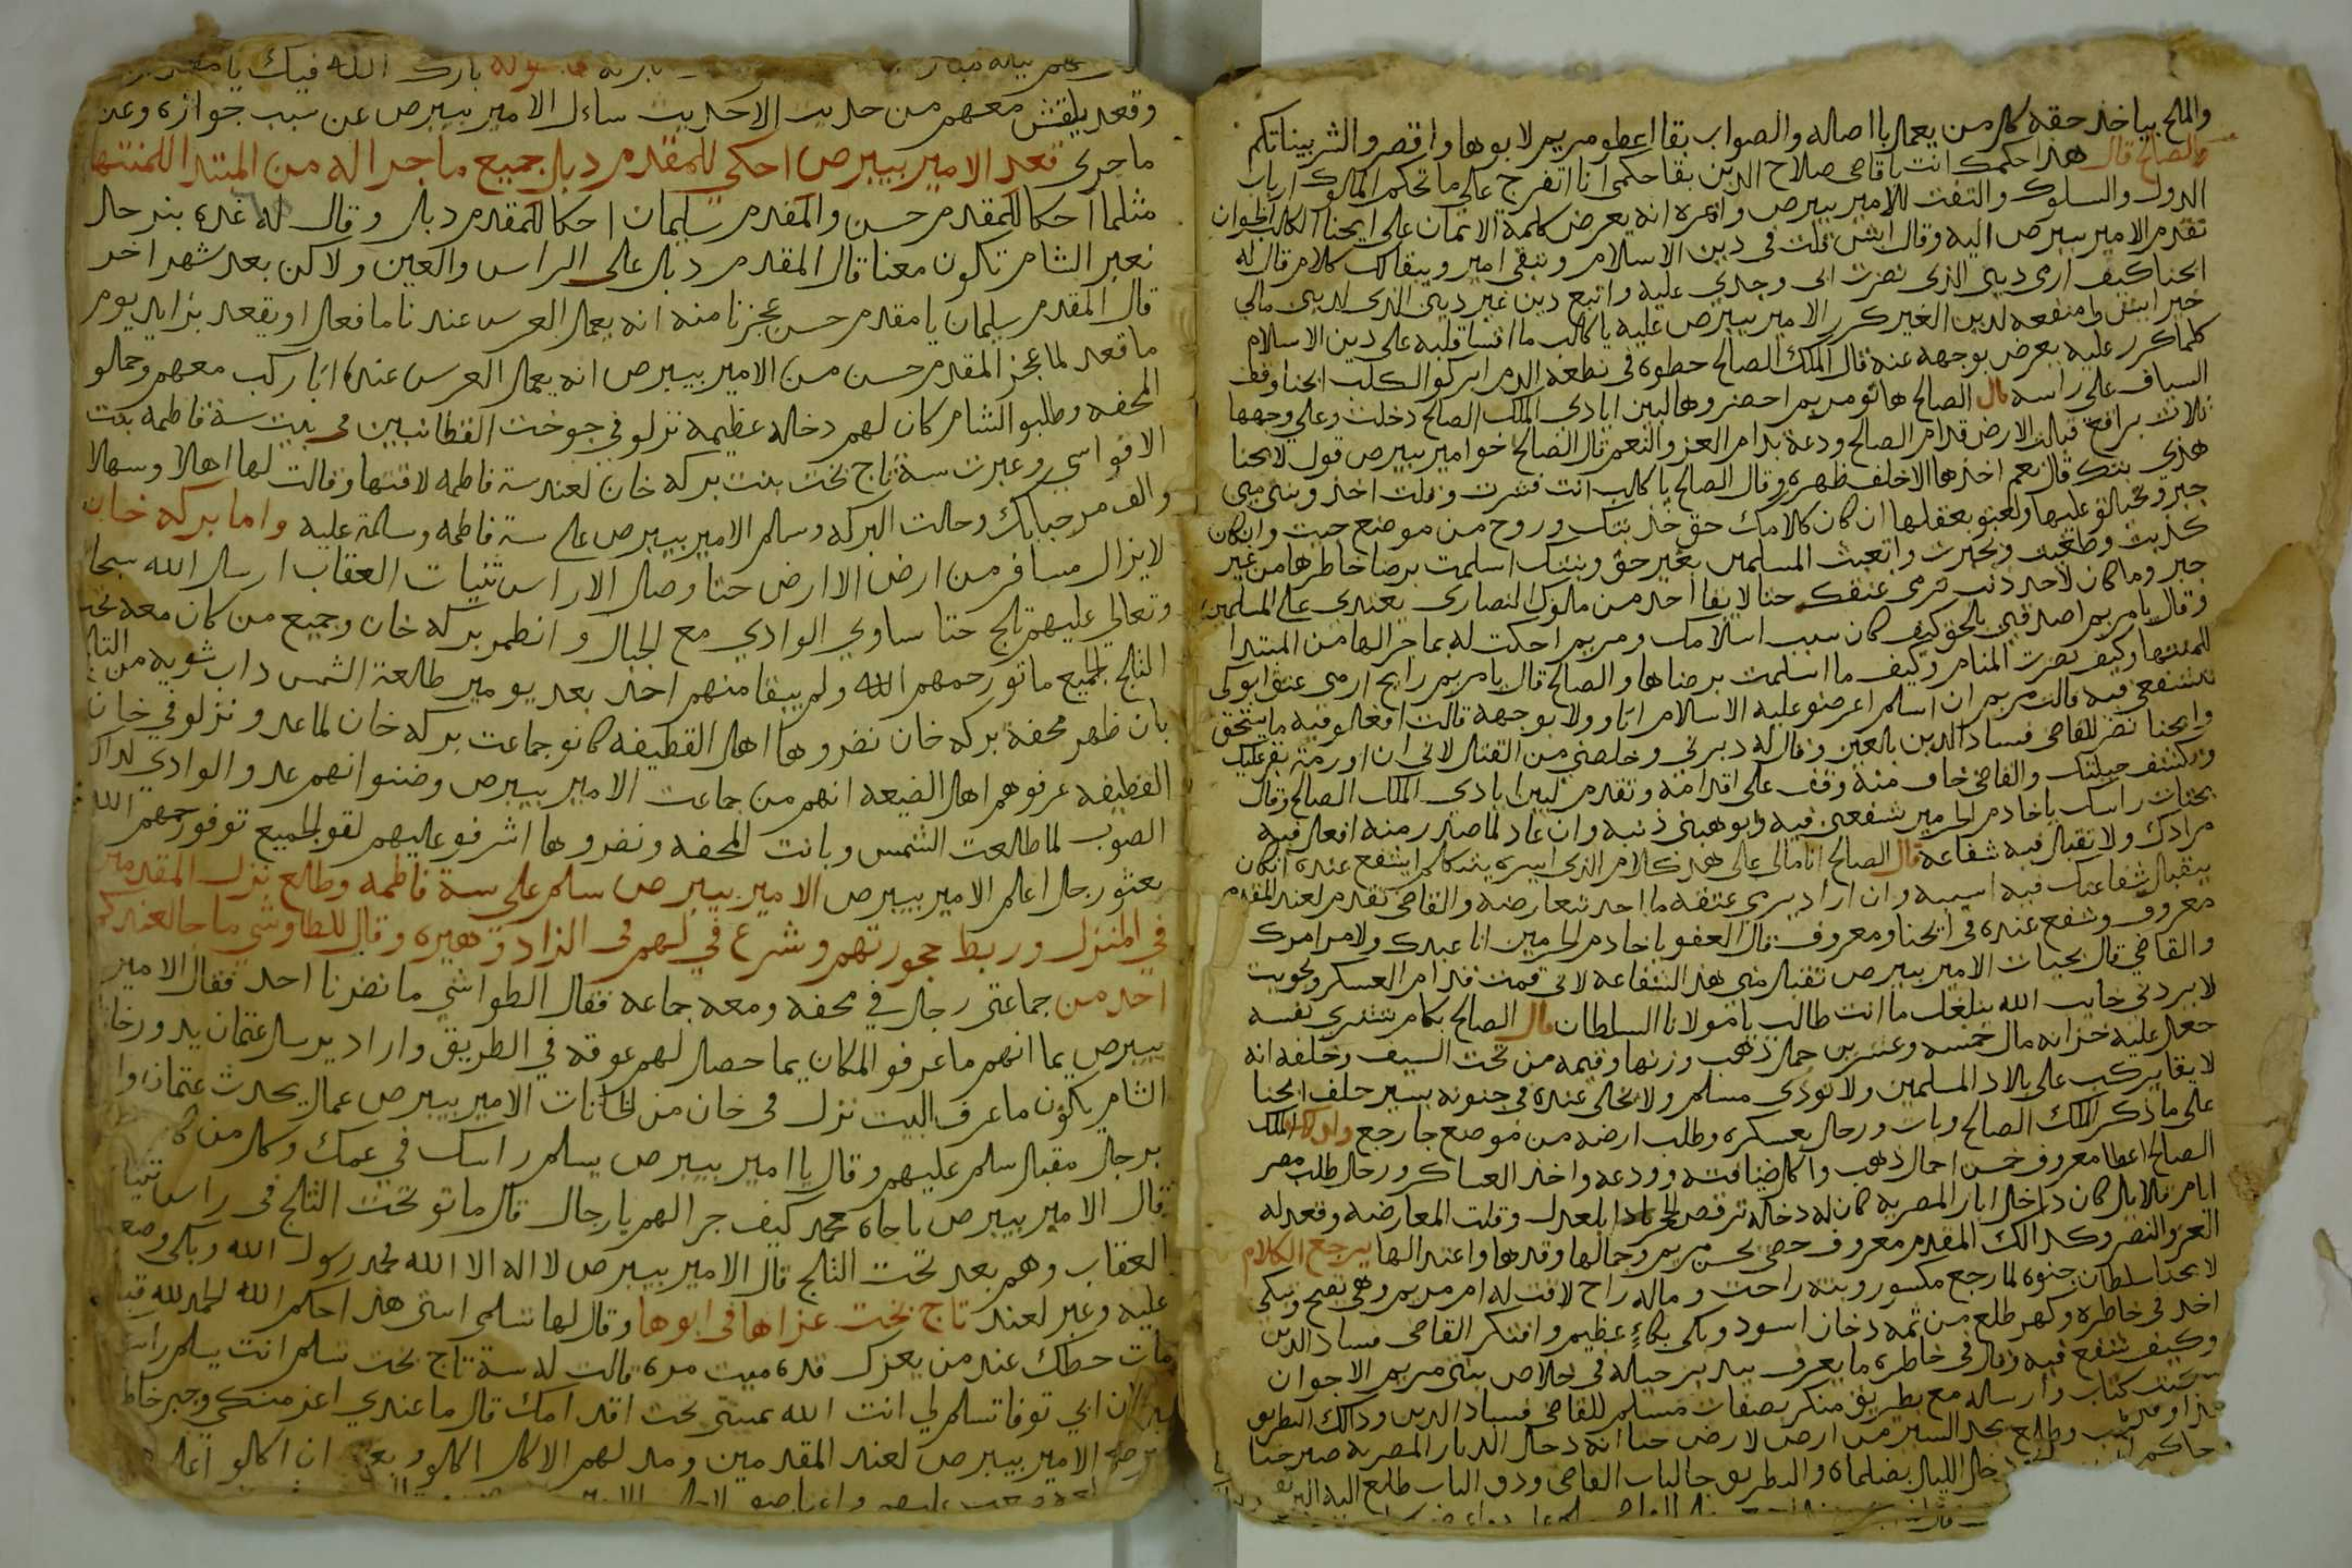 والملح بياخذ حقه كلمن يعمل بااصاله والصواب بقا اعطو مريم لابوها واقصرو الشر بيناتكم
والصالح قال هذا حكمك انت يا قاضي صلاح الدين بقا حكمي انا اتفرج على ما تحكم الملوك ارباب
الدول والسلوك والتفت للامير بيبرص وامره انه يعرض كلمة الايمان على ايحنا الكلب الجوان
تقدم الامير بيبرص اليه وقال ايش قلت في دين الاسلام وتبقى امير ويبقالك كلام قال له
ايحنا كيف ارمي ديني الذي نضرت ابي وجدي عليه واتبع دين غير ديني الذي لديني مالي
خير ايش وامنفعه لدين الغير كرر الامير بيبرص عليه يا كالب ما اقسا قلبه على دين الاسلام
كلما كرر عليه يعرض بوجهه عنه قال الملك الصالح حطوه في نطعة الدم ابركوا الكلب ايحنا وقف
السياف على راسه قال الصالح هاتو مريم احضروها لبين ايادي الملك الصالح دخلت وعلى وجهها
ثلاث براقع قبلت الارض قدام الصالح ودعة بدام العز والنعم قال الصالح اخوا مير بيبرص قول لايحنا
هذي بنتك قال نعم اخذها الاخلف ظهره وقال الصالح يا كالب انت فشرت وقلت اخذو بنتي مني
جبر وتحيالو عليها ولعبو بعقلها ان كان كلامك حق خذ بنتك وروح من موضع جيت وان كان
كذبت وطغيت وتجبرت واتعبت المسلمين بغير حق وبنتك اسلمت برضا خاطرها من غير
جبر وما كان لاحد ذنب نرمي عنقك حتا لا يقا احد من ملوك النصارى يعتدي على المسلمين
وقال يا مريم اصدقيني بالحق كيف كان سبب اسلامك ومريم احكت له بما جرا لها من المبتدا
للمنتها وكيف نضرت المنام وكيف ما اسلمت برضاها والصالح قال يا مريم رايح ارمي عنق ابوكي
تتشفعي فيه قالت مريم ان اسلم اعرضو عليه الاسلام اتاور ولا بوجهه قالت افعلو فيه ما يستحق
وايحنا نضر للقاضي فساد الدين بالعين وقال له دبرني وخلصني من القتل لاني ان اورمة بقر عليك
وتكشف حيلتك والقاضي خاف منه وقف على اقدامه وتقدم لبين ايادي الملك الصالح وقال
بحيات راسك يا خادم الحرمين شفعني فيه وابوهبني ذنبه وان عاد لما صدر منه افعل فيه
مرادك ولا تقبل فيه شفاعه قال الصالح انا مالي على هذا كلام الذي اسيره بيتكلم ايتشفع عنده انكان
بيقبل شفاعتك فيه اسيبه وان اراد يرمي عنقه ما احد بيعارضه والقاضي تقدم لعند المقدم
معروف وشفع عنده في ايحنا ومعروف قال العفو يا خادم الحرمين انا عبدك ولامر امرك
والقاضي قال بحيات الامير بيبرص تقبل مني هذا الشفاعه لاني قمت قدام العسكر وتحويت
لا بردني خايب الله يبلغك ما انت طالب يا مولانا السلطان قال الصالح بكام تشتري نفسه
جعل عليه خزانه مال خمسه وعشرين حمل ذهب وزنها وقيمه من تحت السيف وخلفه انه
لا يقا يركب على بلاد المسلمين ولا يوذي مسلم ولا تخلي عنده في جنونه يسير حلف ايحنا
على ما ذكر الملك الصالح وبات ورحل بعسكره وطلب ارضه من موضع جا رجع واما الملك
الصالح اعطا معروف خمس احمال ذهب واكل ضيافته وودعه واخذ العساكر ورحل طلب مصر
ايام قلايل كان داخل ايار المصريه كان له دخاله ترقص لها ابلعدل وقلت المعارضه وقعد له
العز والنصر وكذالك المقدم معروف حضي بحسن مريم وجمالها وقدها واعتدالها يرجع الكلام
لايحنا سلطان جنوه لما رجع مكسور وبنته راحت وماله راح لاقت له ام مريم وهي تصيح وتبكي
اخذ في خاطره وكهر طلع من تمه دخان اسود وبكى بكاء عظيم وافتكر القاضي فساد الدين
وكيف شفع فيه وقال في خاطره ما يعرف يدبر حيله في خلاص بنتي مريم الا جوان
كتب كتاب وارساله مع بطريق منكر بصفات مسلم للقاضي فساد الدين وذالك البطريق
خذ او مكتب وطلع يجد السير من ارض لارض حتا انه دخل الديار المصرية صبر حتا
دخل الليل بضلماه والبطريق جا لباب القاضي ودق الباب طلع اليه البربق
بارك الله فيك يا مقدم
وقعد يلقش معهم من حديث الاحديث ساءل الامير بيبرص عن سبب جوازه وعن
ماجرى قعد الامير بيبرص احكي للمقدم دبل جميع ماجرا له من المبتدا للمنتها
مثلما احكا للمقدم حسن والمقدم سليمان احكا للمقدم دبل وقال له غدي بنرحل
نعبر الشام تكون معنا قال المقدم دبل على الراس والعين ولاكن بعد شهر اخر
قال المقدم سليمان يا مقدم حسن عجزنا منه انه يعمل العرس عندنا ما فعل اويقعد بزايد يوم
ماقعد لما عجز المقدم حسن من الامير بيبرص انه يعمل العرس عنده ابا ركب معهم وحملو
المحفه وطلبو الشام كان لهم دخاله عظيمه نزلو في جوخت القطانبين في بيت سة فاطمه بنت
الاقواسي وعبرت سة تاج بخت بنت بركه خان لعند سة فاطمه لاقتها وقالت لها اهلا وسهلا
والف مرحبا بك وحلت البركه وسلم الامير بيبرص على سة فاطمه وسلمة عليه واما بركه خان
لايزال مسافر من ارض الا ارض حتا وصل الا راس ثنيات العقاب ارسل الله سبحا
وتعالى عليهم ثلج حتا ساوى الوادي مع الجبال وانطمر بركه خان وجميع من كان معه تحت
الثلج الجميع ماتو رحمهم الله ولم يبقا منهم احد بعد يومين طالعة الشمس داب شويه من الثلج
بان ظهر محفة بركه خان نضروها اهل القطيفه كانو جماعت بركه خان لما عدو نزلو في خان
القطيفه عرفوهم اهل الضيعه انهم من جماعت الامير بيبرص وضننوا انهم عدو الوادي لداك
الصوب لما طالعت الشمس وبانت المحفه ونضروها اشرفو عليهم لقو الجميع توفو رحمهم الله
بعثو رجل اعلم الامير بيبرص الامير بيبرص سلم على سة فاطمه وطلع نزل المقدمين
في المنزل وربط حجورتهم وشرع في لهم في الزاد وهيره وقال للطاوشي ما جا لعندكم
احد من جماعتي رجال في محفه ومعه جماعه فقال الطواشي ما نضرنا احد فقال الامير
بيبرص يما انهم ماعرفو المكان يما حصل لهم عوقه في الطريق واراد يرسل عتمان يدور خان
الشام يكون ماعرف البيت نزل في خان من الخانات الامير بيبرص عمال يحدث عتمان وا
برجل مقبل سلم عليهم وقال يا امير بيبرص يسلم راسك في عمك وكلمن كا
قال الامير بيبرص ياجاه محمد كيف جرا لهم يا رجال قال ماتو تحت الثلج في راس ثنيا
العقاب وهم بعد تحت الثلج قال الامير بيبرص لا اله الا الله محمد رسول الله وبكى وصعب
عليه وعبر لعند تاج بخت عزاها في ابوها وقال لها تسلمي استي هذا حكم الله الحمد لله قبل
مات حطك عند من يعزك قده ميت مره قالت له سة تاج بخت تسلم انت يسلم راسك
ان ابي توفا تسلم لي انت الله عميتي تحت اقدامك قال ما عندي اعز منك وجبر خاطر
الامير بيبرص لعند المقدمين ومد لهم الاكل اكلو وبعد ان اكلو